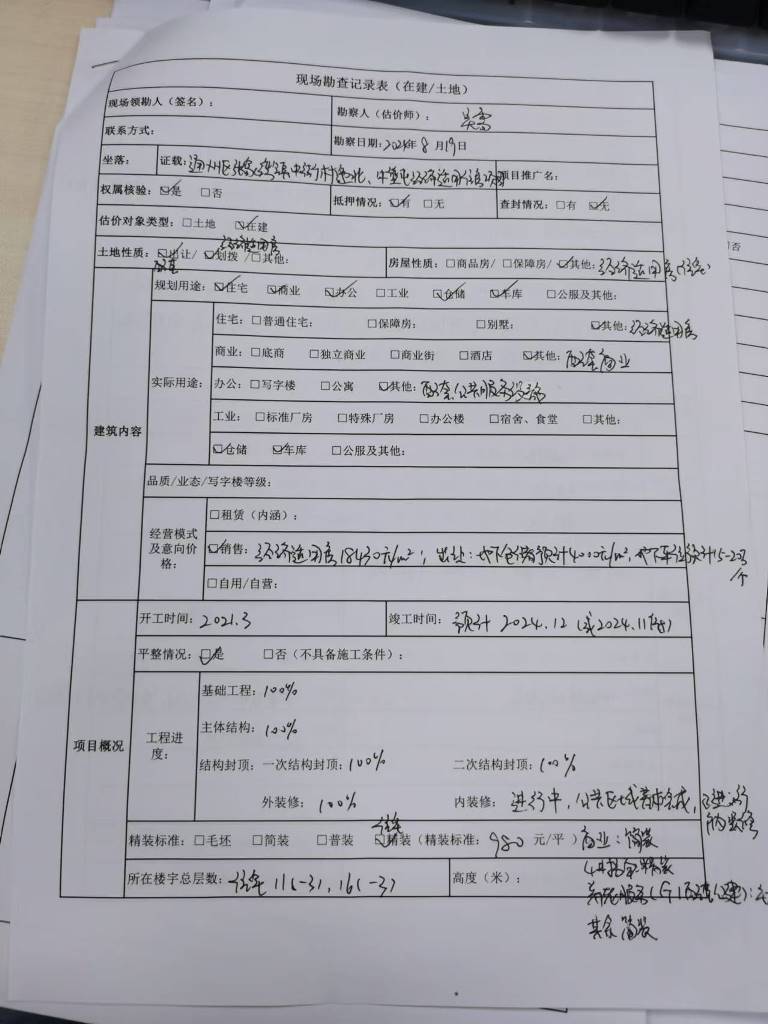 现场勘查记录表（在建/土地）
现场领勘人（签名）： 勘察人（估价师）：
联系方式： 勘察日期：2024年8月19日
坐落： 证载：通州区张家湾镇中街村 经济适用住房项目 项目推广名：
权属核验：☑是 □否 抵押情况：☑有 □无 查封情况：□有 ☑无
估价对象类型：□土地 ☑在建
经济适用房
土地性质：☑出让/ ☑划拨 /□其他： 房屋性质：□商品房/ □保障房/ ☑其他：经济适用房(住宅)
配套
建筑内容
规划用途：☑住宅 ☑商业 ☑办公 □工业 ☑仓储 ☑车库 □公服及其他：
实际用途：
住宅：□普通住宅： □保障房： □别墅： ☑其他：经济适用房
商业：□底商 □独立商业 □商业街 □酒店 ☑其他：配套商业
办公：□写字楼 □公寓 ☑其他：配套公共服务设施
工业：□标准厂房 □特殊厂房 □办公楼 □宿舍、食堂 □其他：
☑仓储 ☑车库 □公服及其他：
品质/业态/写字楼等级：
经营模式及意向价格：
□租赁（内涵）：
☑销售：经济适用房18430元/m²；出让：地下仓储预计4000元/m²，地下车位预计15-20万/个
□自用/自营：
项目概况
开工时间：2021.3 竣工时间：预计 2024.12（或2024.11
平整情况：☑是 □否（不具备施工条件）：
工程进度：
基础工程：100%
主体结构：100%
结构封顶：一次结构封顶：100% 二次结构封顶：100%
外装修：100% 内装修：进行中，公共区域基本完成，
住宅
精装标准：□毛坯 □简装 □普装 ☑精装（精装标准：980 元/平） 商业：简装
所在楼宇总层数：住宅 11(-3)，16(-3) 高度（米）：
其余简装